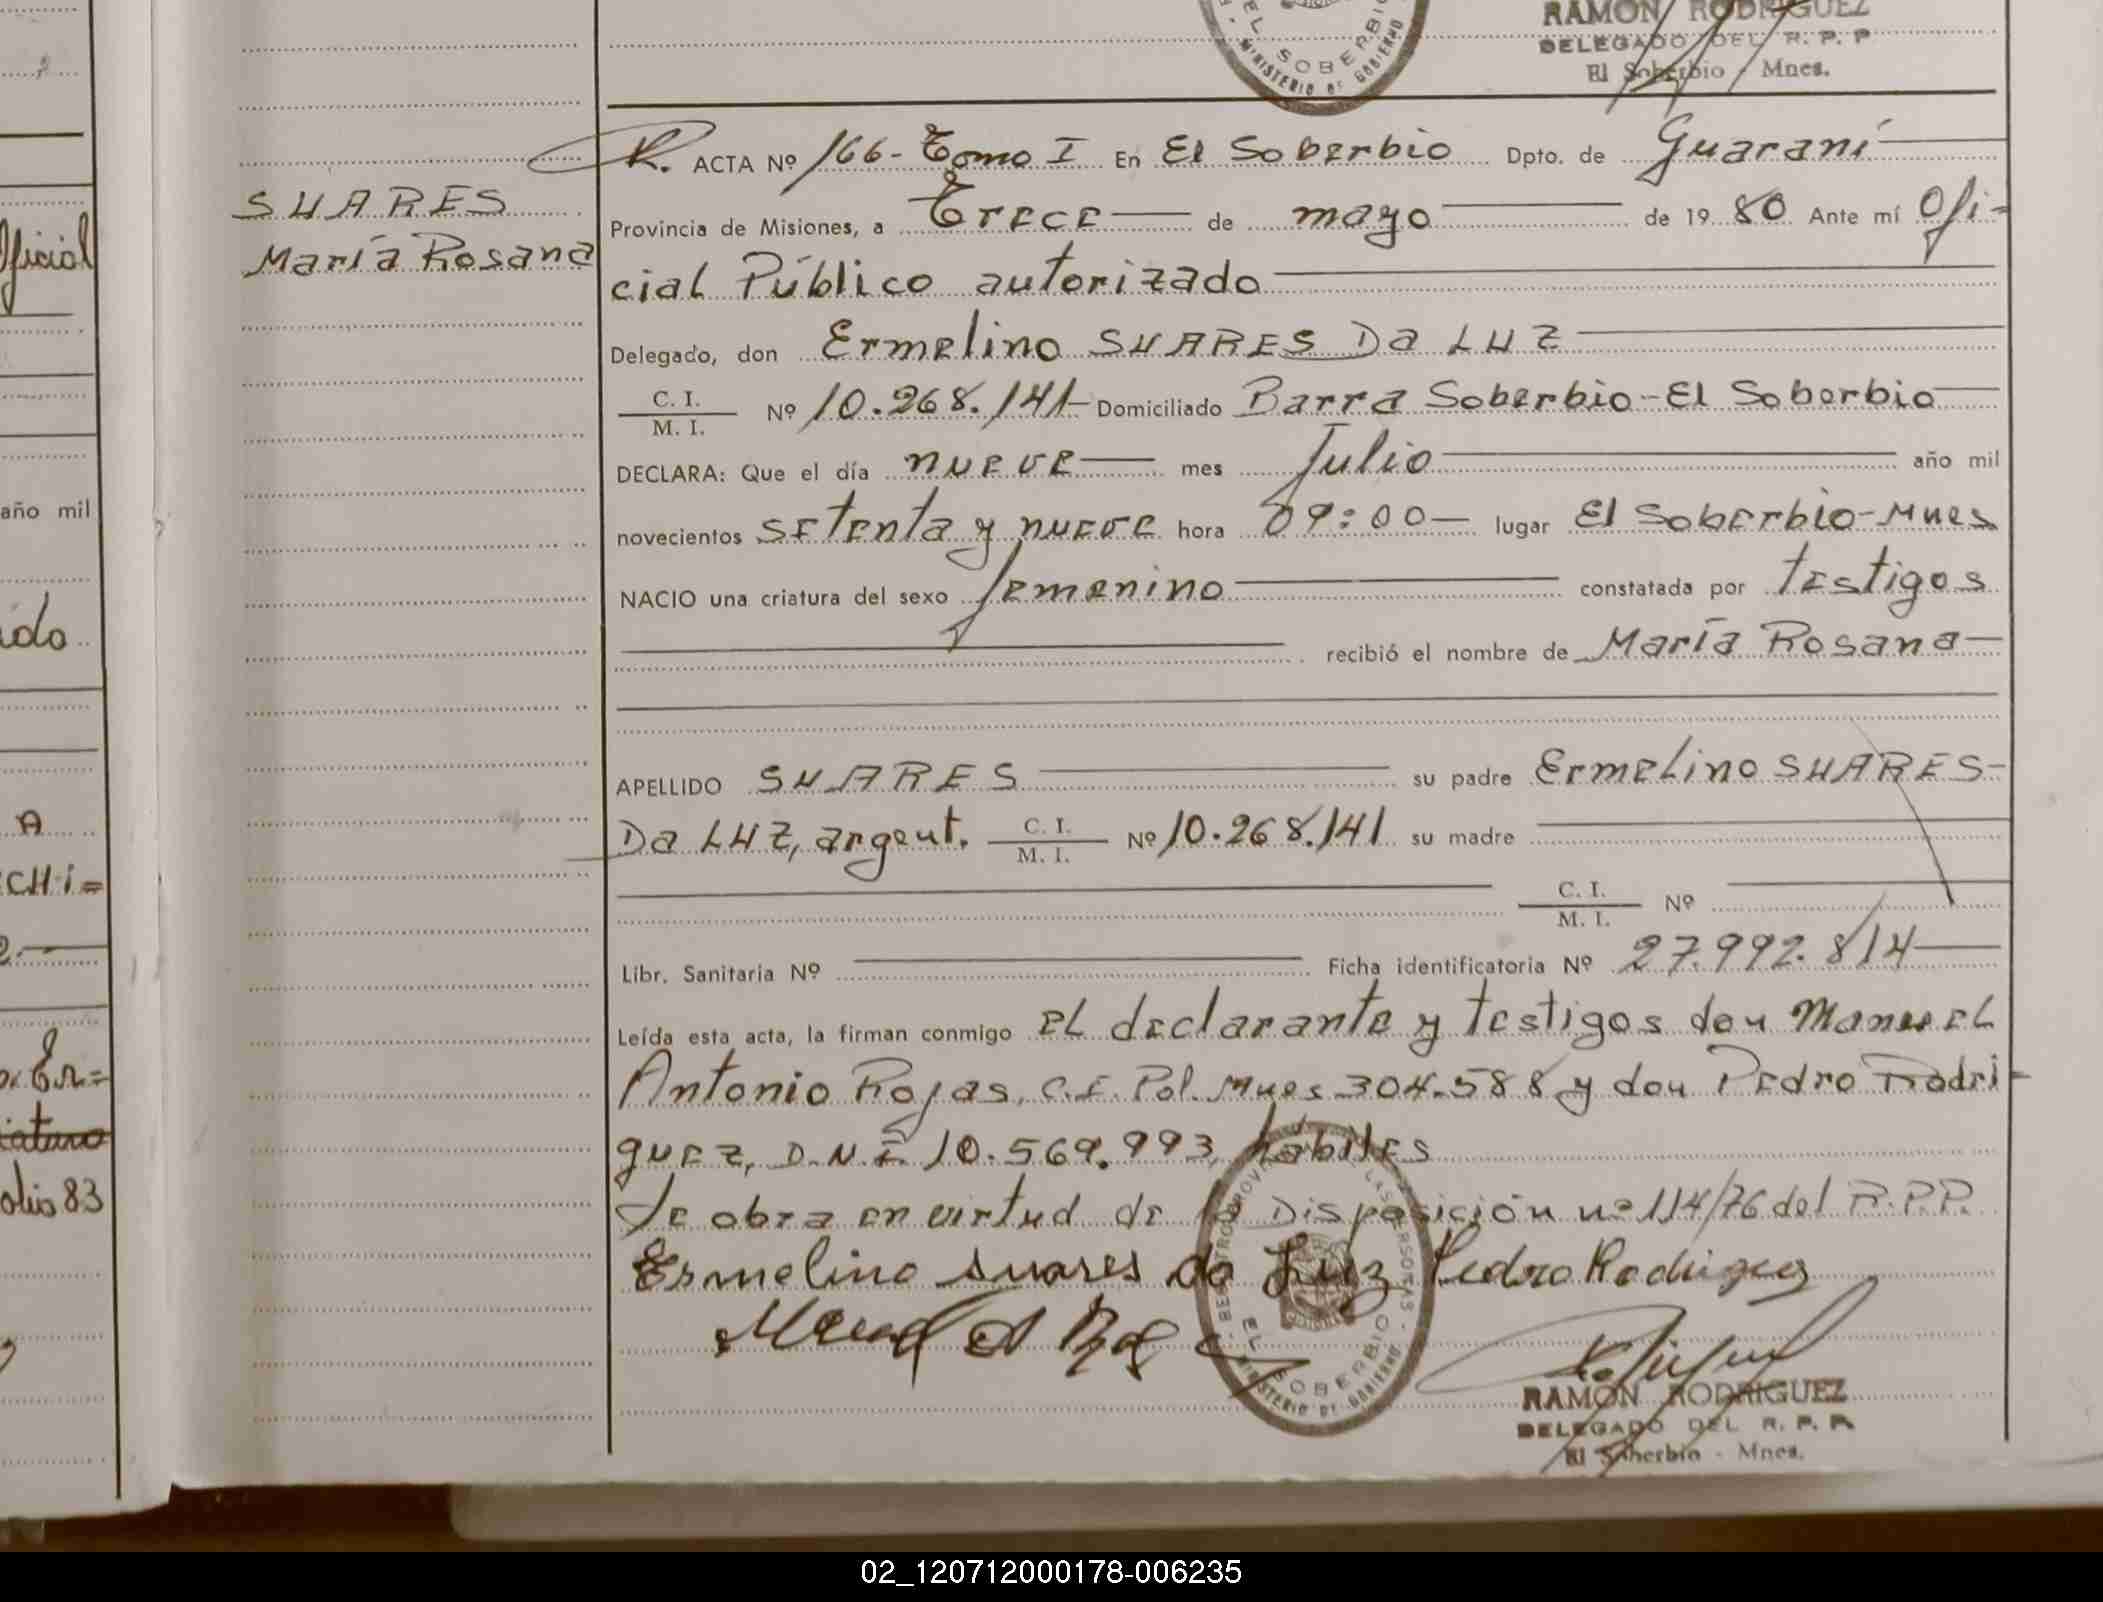 RAMON RODRIGUEZ
DELEGADO DEL R. P. P
El Soberbio - Mnes.
EL SOBERBIO
MINISTERIO DE GOBIERNO
R. ACTA Nº 166- Tomo I En El Soberbio Dpto. de Guaraní
SUARES
María Rosana
Provincia de Misiones, a Trece de mayo de 19 80 Ante mí Ofi-
cial Público autorizado
Delegado, don Ermelino SUARES Da LUZ
C. I.
M. I. Nº 10.268.141- Domiciliado Barra Soberbio-El Soberbio
DECLARA: Que el día nueve mes Julio año mil
novecientos setenta y nueve hora 09:00 lugar El Soberbio-Mnes
NACIO una criatura del sexo femenino constatada por testigos
recibió el nombre de María Rosana
APELLIDO SUARES su padre Ermelino SUARES-
Da LUZ, argent. C. I.
M. I. Nº 10.268.141 su madre
C. I.
M. I. Nº
Libr. Sanitaria Nº Ficha identificatoria Nº 27.992.814
Leída esta acta, la firman conmigo el declarante y testigos don Manuel
Antonio Rojas, C.I. Pol. Mnes 304.588 y don Pedro Rodri-
guez, D.N.I. 10.569.993, hábiles
Se obra en virtud de la Disposición nº 114/76 del R.P.P.
Ermelino suares da Luz Pedro Rodriguez
EL SOBERBIO
MINISTERIO DE GOBIERNO
RAMON RODRIGUEZ
DELEGADO DEL R. P. P.
El Soberbio - Mnes.
oficial
año mil
ido
A
CHi=
olio 83
02_120712000178-006235